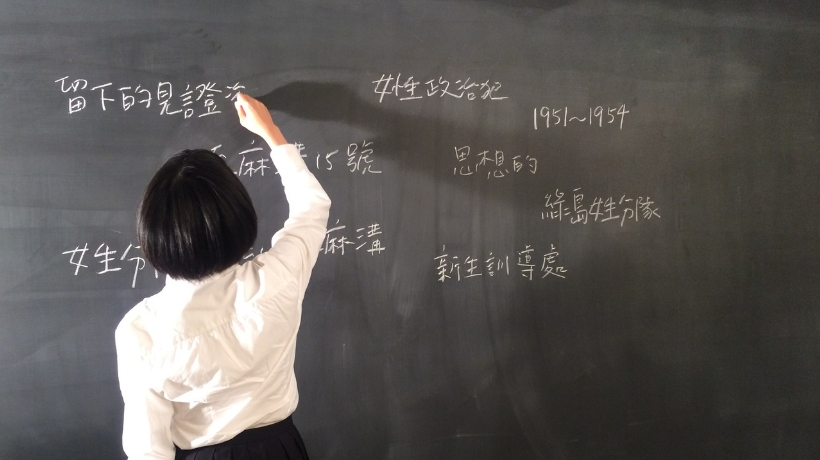 留下的見證
女性政治犯
1951～1954
麻溝15號
思想的
綠島女生分隊
女生分
麻溝
新生訓導處